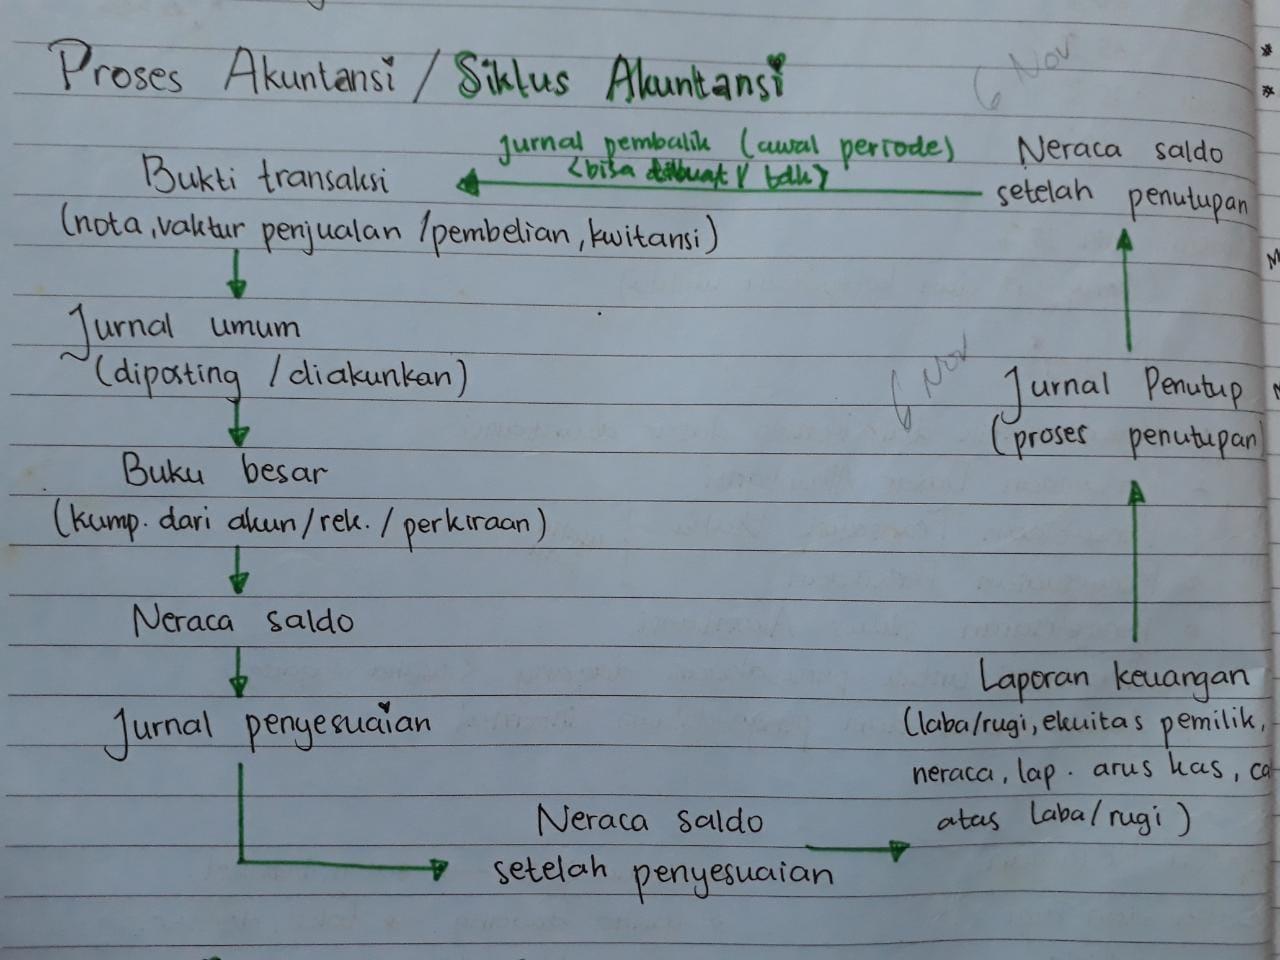 Proses Akuntansi / Siklus Akuntansi
6 Nov
Jurnal pembalik (awal periode)
<bisa dibuat / tdk>
Bukti transaksi
(nota, vaktur penjualan /pembelian, kwitansi)
Jurnal umum
(diposting / diakunkan)
Buku besar
(kump. dari akun/rek. / perkiraan)
Neraca saldo
Jurnal penyesuaian
Neraca saldo
setelah penyesuaian
Laporan keuangan
(laba/rugi, ekuitas pemilik,
neraca, lap. arus kas, ca
atas laba/rugi)
6 Nov
Jurnal Penutup
(proses penutupan)
Neraca saldo
setelah penutupan